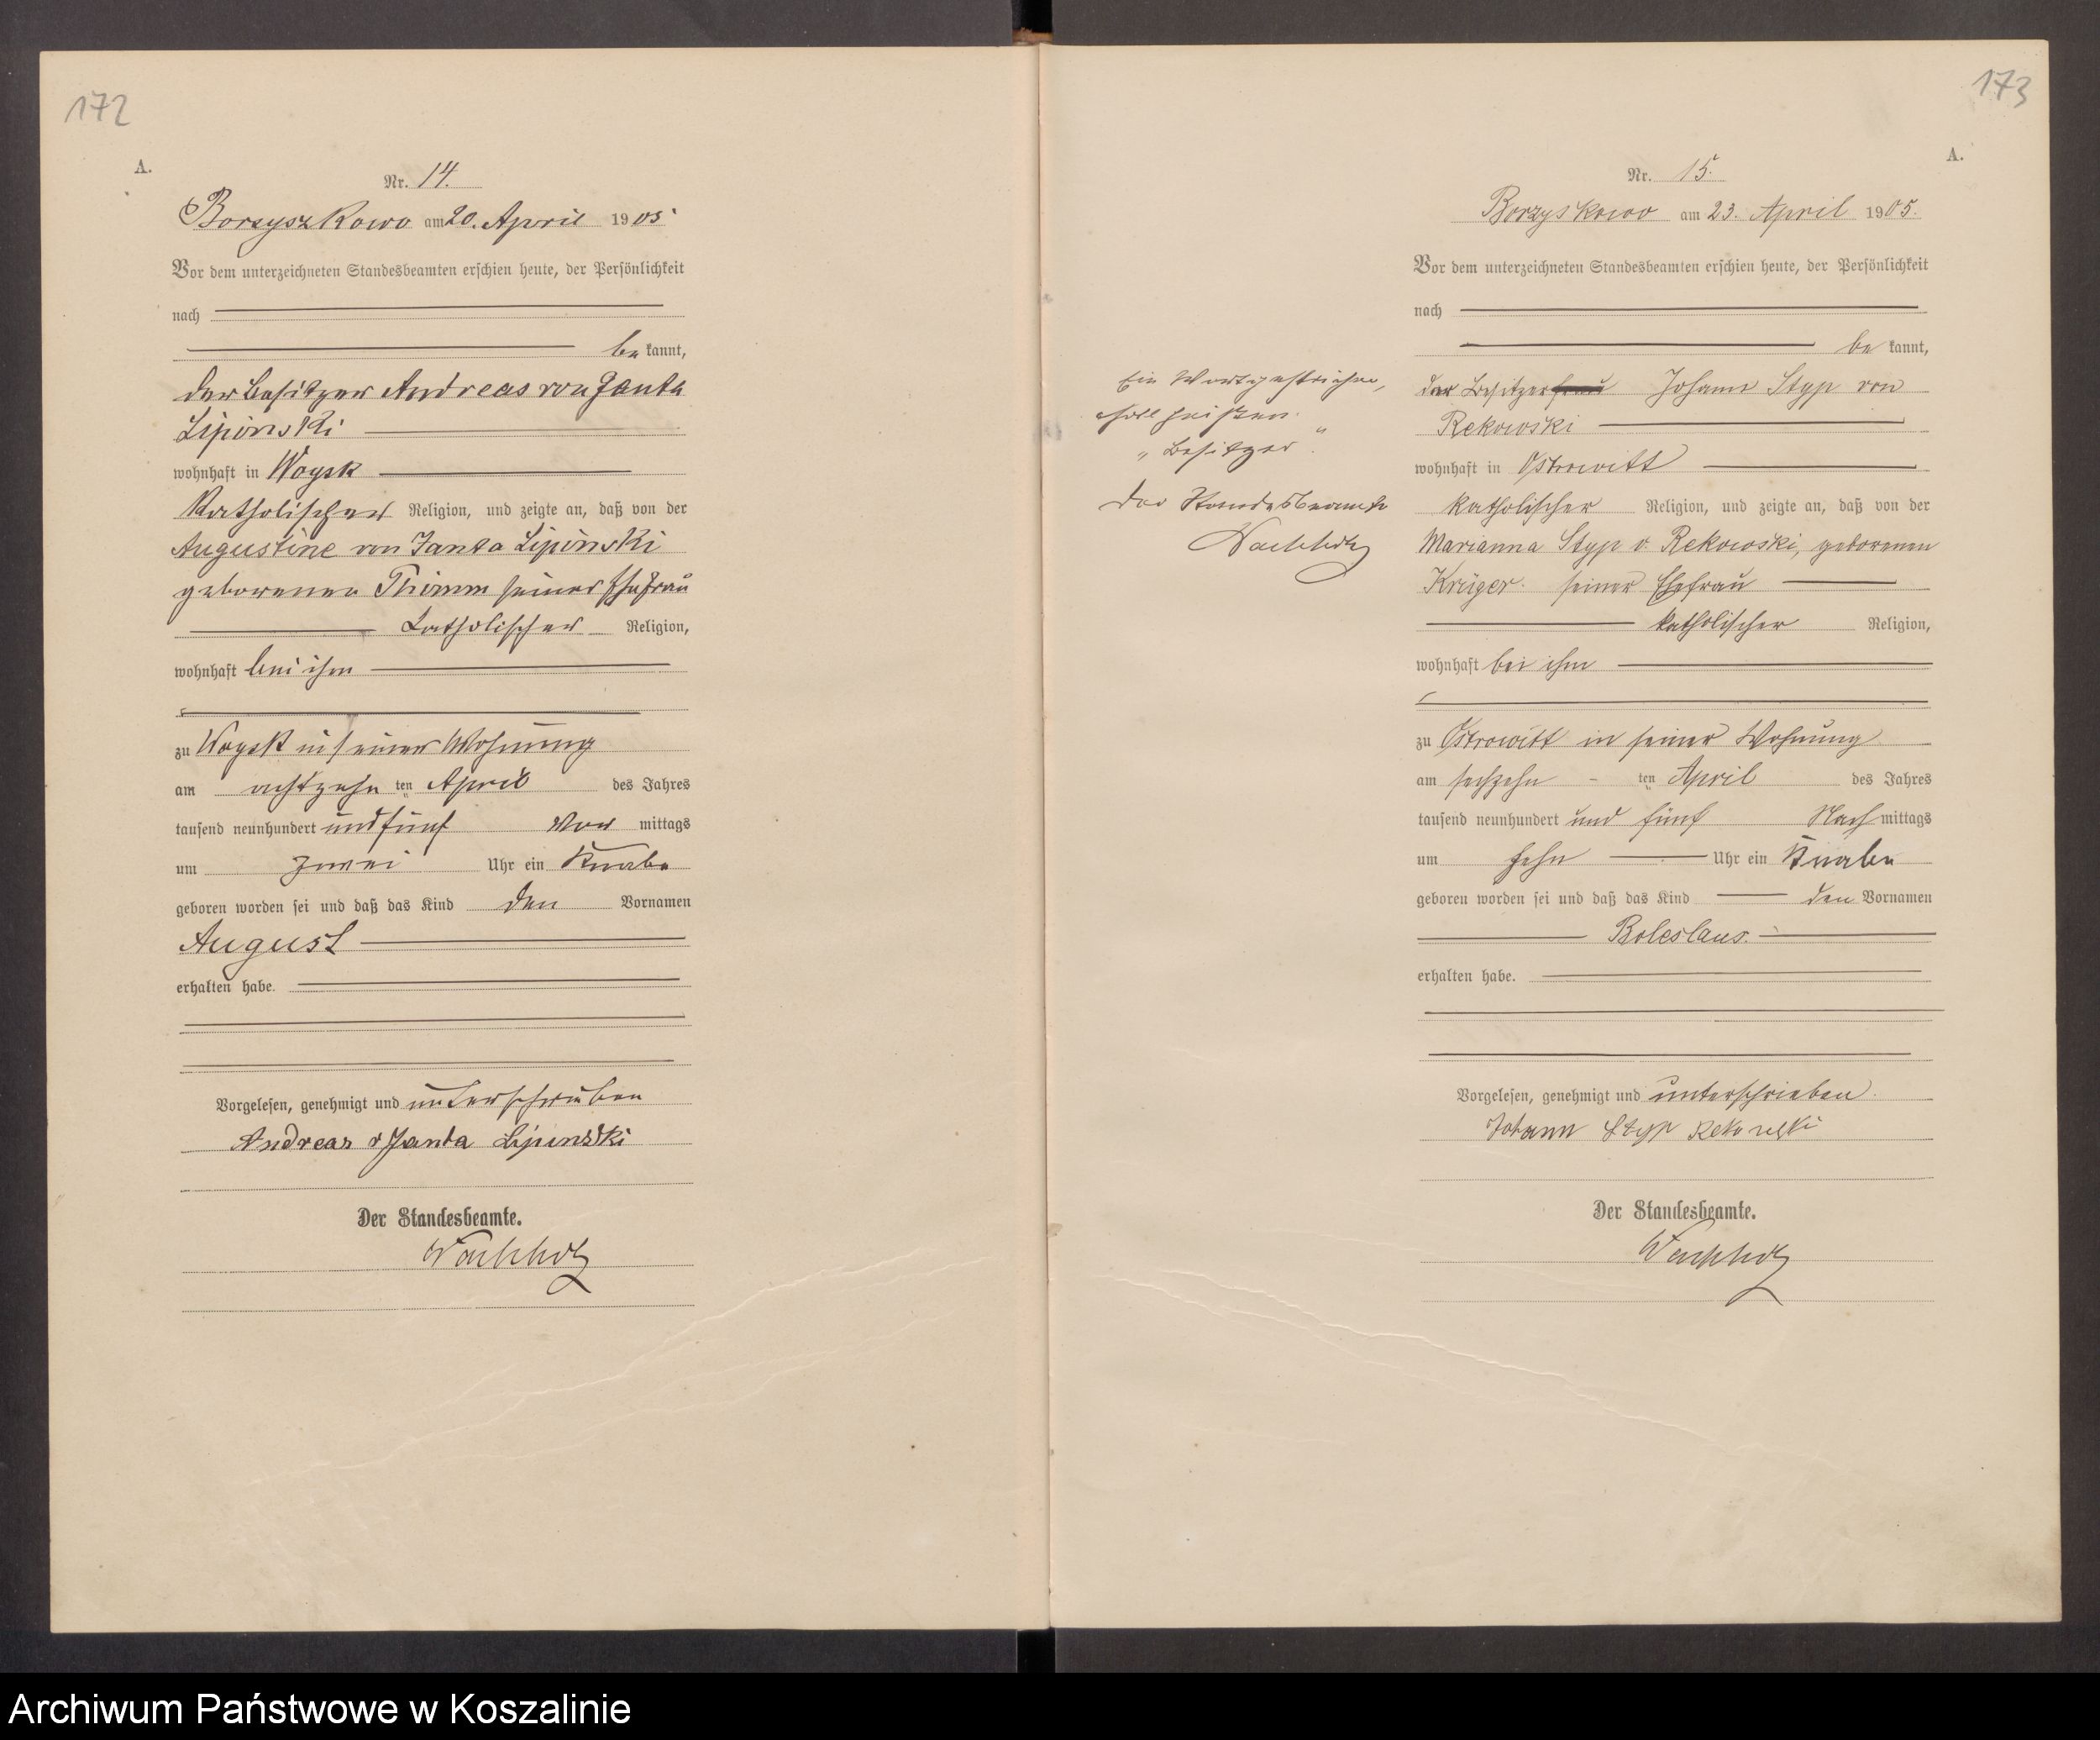 172
A.
Nr. 14.
Borzyszkowo am 20. April 1905
Vor dem unterzeichneten Standesbeamten erschien heute, der Persönlichkeit
nach
be kannt,
der Besitzer Andreas von Janta
Lipinski
wohnhaft in Woysk
katholischer Religion, und zeigte an, daß von der
Augustine von Janta Lipinski
geborenen Thimm seiner Ehefrau
katholischer Religion,
wohnhaft bei ihm
zu Woysk in seiner Wohnung
am achtzehn ten April des Jahres
tausend neunhundert und fünf Vor mittags
um zwei Uhr ein Knabe
geboren worden sei und daß das Kind den Vornamen
August
erhalten habe.
Vorgelesen, genehmigt und unterschrieben
Andreas v Janta Lipinski
Der Standesbeamte.
Wachholz
173
A.
Nr. 15.
Borzyskowo am 23. April 1905.
Vor dem unterzeichneten Standesbeamten erschien heute, der Persönlichkeit
nach
be kannt,
der Besitzerfrau Johann Styp von
Rekowski
wohnhaft in Ostrowitt
katholischer Religion, und zeigte an, daß von der
Marianna Styp v. Rekowski, geborenen
Krüger. seiner Ehefrau
katholischer Religion,
wohnhaft bei ihm
zu Ostrowitt in seiner Wohnung
am sechzehn - ten April des Jahres
tausend neunhundert und fünf Nach mittags
um zehn Uhr ein Knabe
geboren worden sei und daß das Kind den Vornamen
Boleslaus.
erhalten habe.
Vorgelesen, genehmigt und unterschrieben.
Johann Styp Rekowski
Der Standesbeamte.
Wachholz
Ein Wort gestrichen,
soll heißen:
„Besitzer“.
Der Standesbeamte
Wachholz
Archiwum Państwowe w Koszalinie